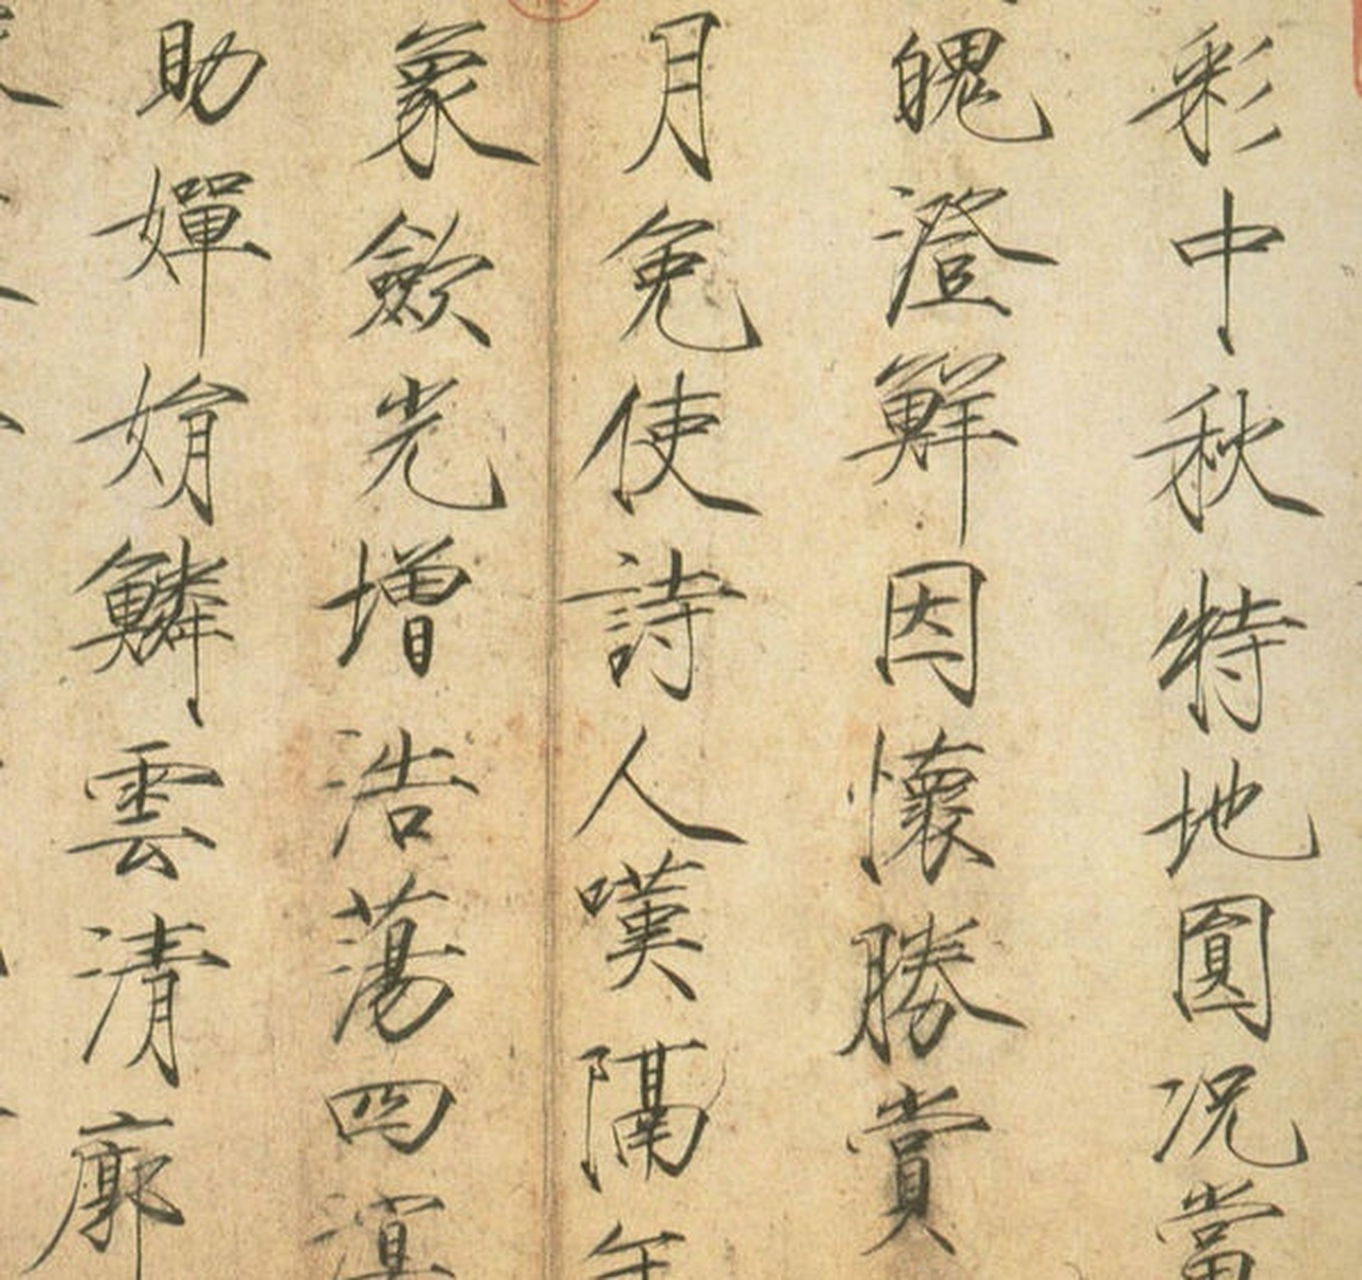 彩中秋特地圓况當
魄澄鮮因懷勝賞
月免使詩人嘆隔年
象歛光增浩蕩四溟
助嬋娟鱗雲清廓